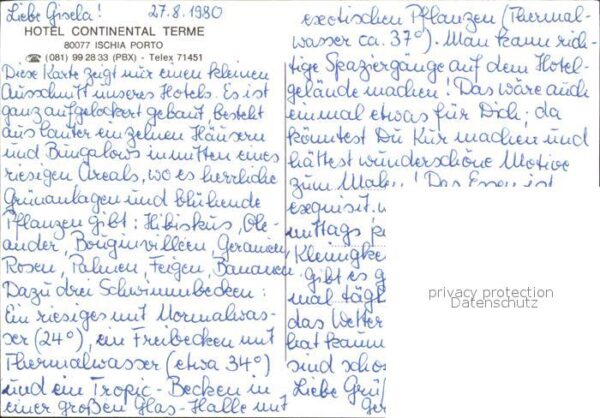 Liebe Gisela! 27.8.1980
HOTEL CONTINENTAL TERME
80077 ISCHIA PORTO
☎ (081) 99 28 33 (PBX) - Telex 71451
Diese Karte zeigt nur einen kleinen
Ausschnitt unseres Hotels. Es ist
ganz aufgelockert gebaut, besteht
aus lauter einzelnen Häusern
und Bungalows inmitten eines
riesigen Areals, wo es herrliche
Grünanlagen und blühende
Pflanzen gibt: Hibiskus, Ole-
ander, Bouginvilleen, Geranien,
Rosen, Palmen, Feigen, Bananen.
Dazu drei Schwimmbecken:
Ein riesiges mit Normalwas-
ser (24°), ein Freibecken mit
Thermalwasser (etwa 34°)
und ein Tropic-Becken in
einer großen Glas-Halle mit
exotischen Pflanzen (Thermal-
wasser ca. 37°). Man kann rich-
tige Spaziergänge auf dem Hotel-
gelände machen! Das wäre auch
einmal etwas für Dich; da
könntest Du Kur machen und
hättest wunderschöne Motive
zum Malen! Das Essen ist
exquisit.
mittags
Kleinigke
gibt es g
mal tägl
das Wetter
hat kaum
sind scho
Liebe Grü
Ger
privacy protection
Datenschutz